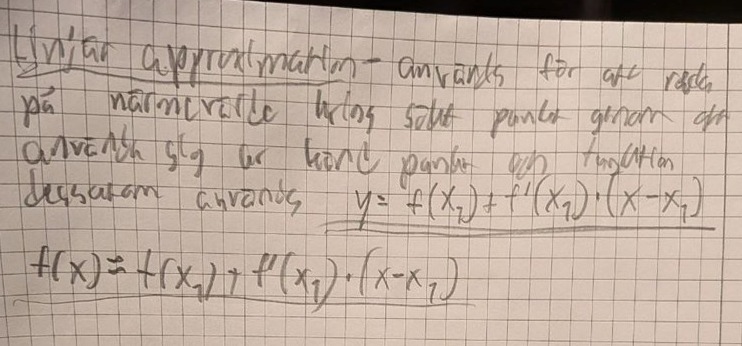 Linjär approximation - används för att reda
på närmevärde hos sökt punkt genom att
använda sig av känd punkt och funktion
dessutom används y = f(x₁) + f'(x₁)·(x-x₁)
f(x) ≈ f(x₁) + f'(x₁)·(x-x₁)